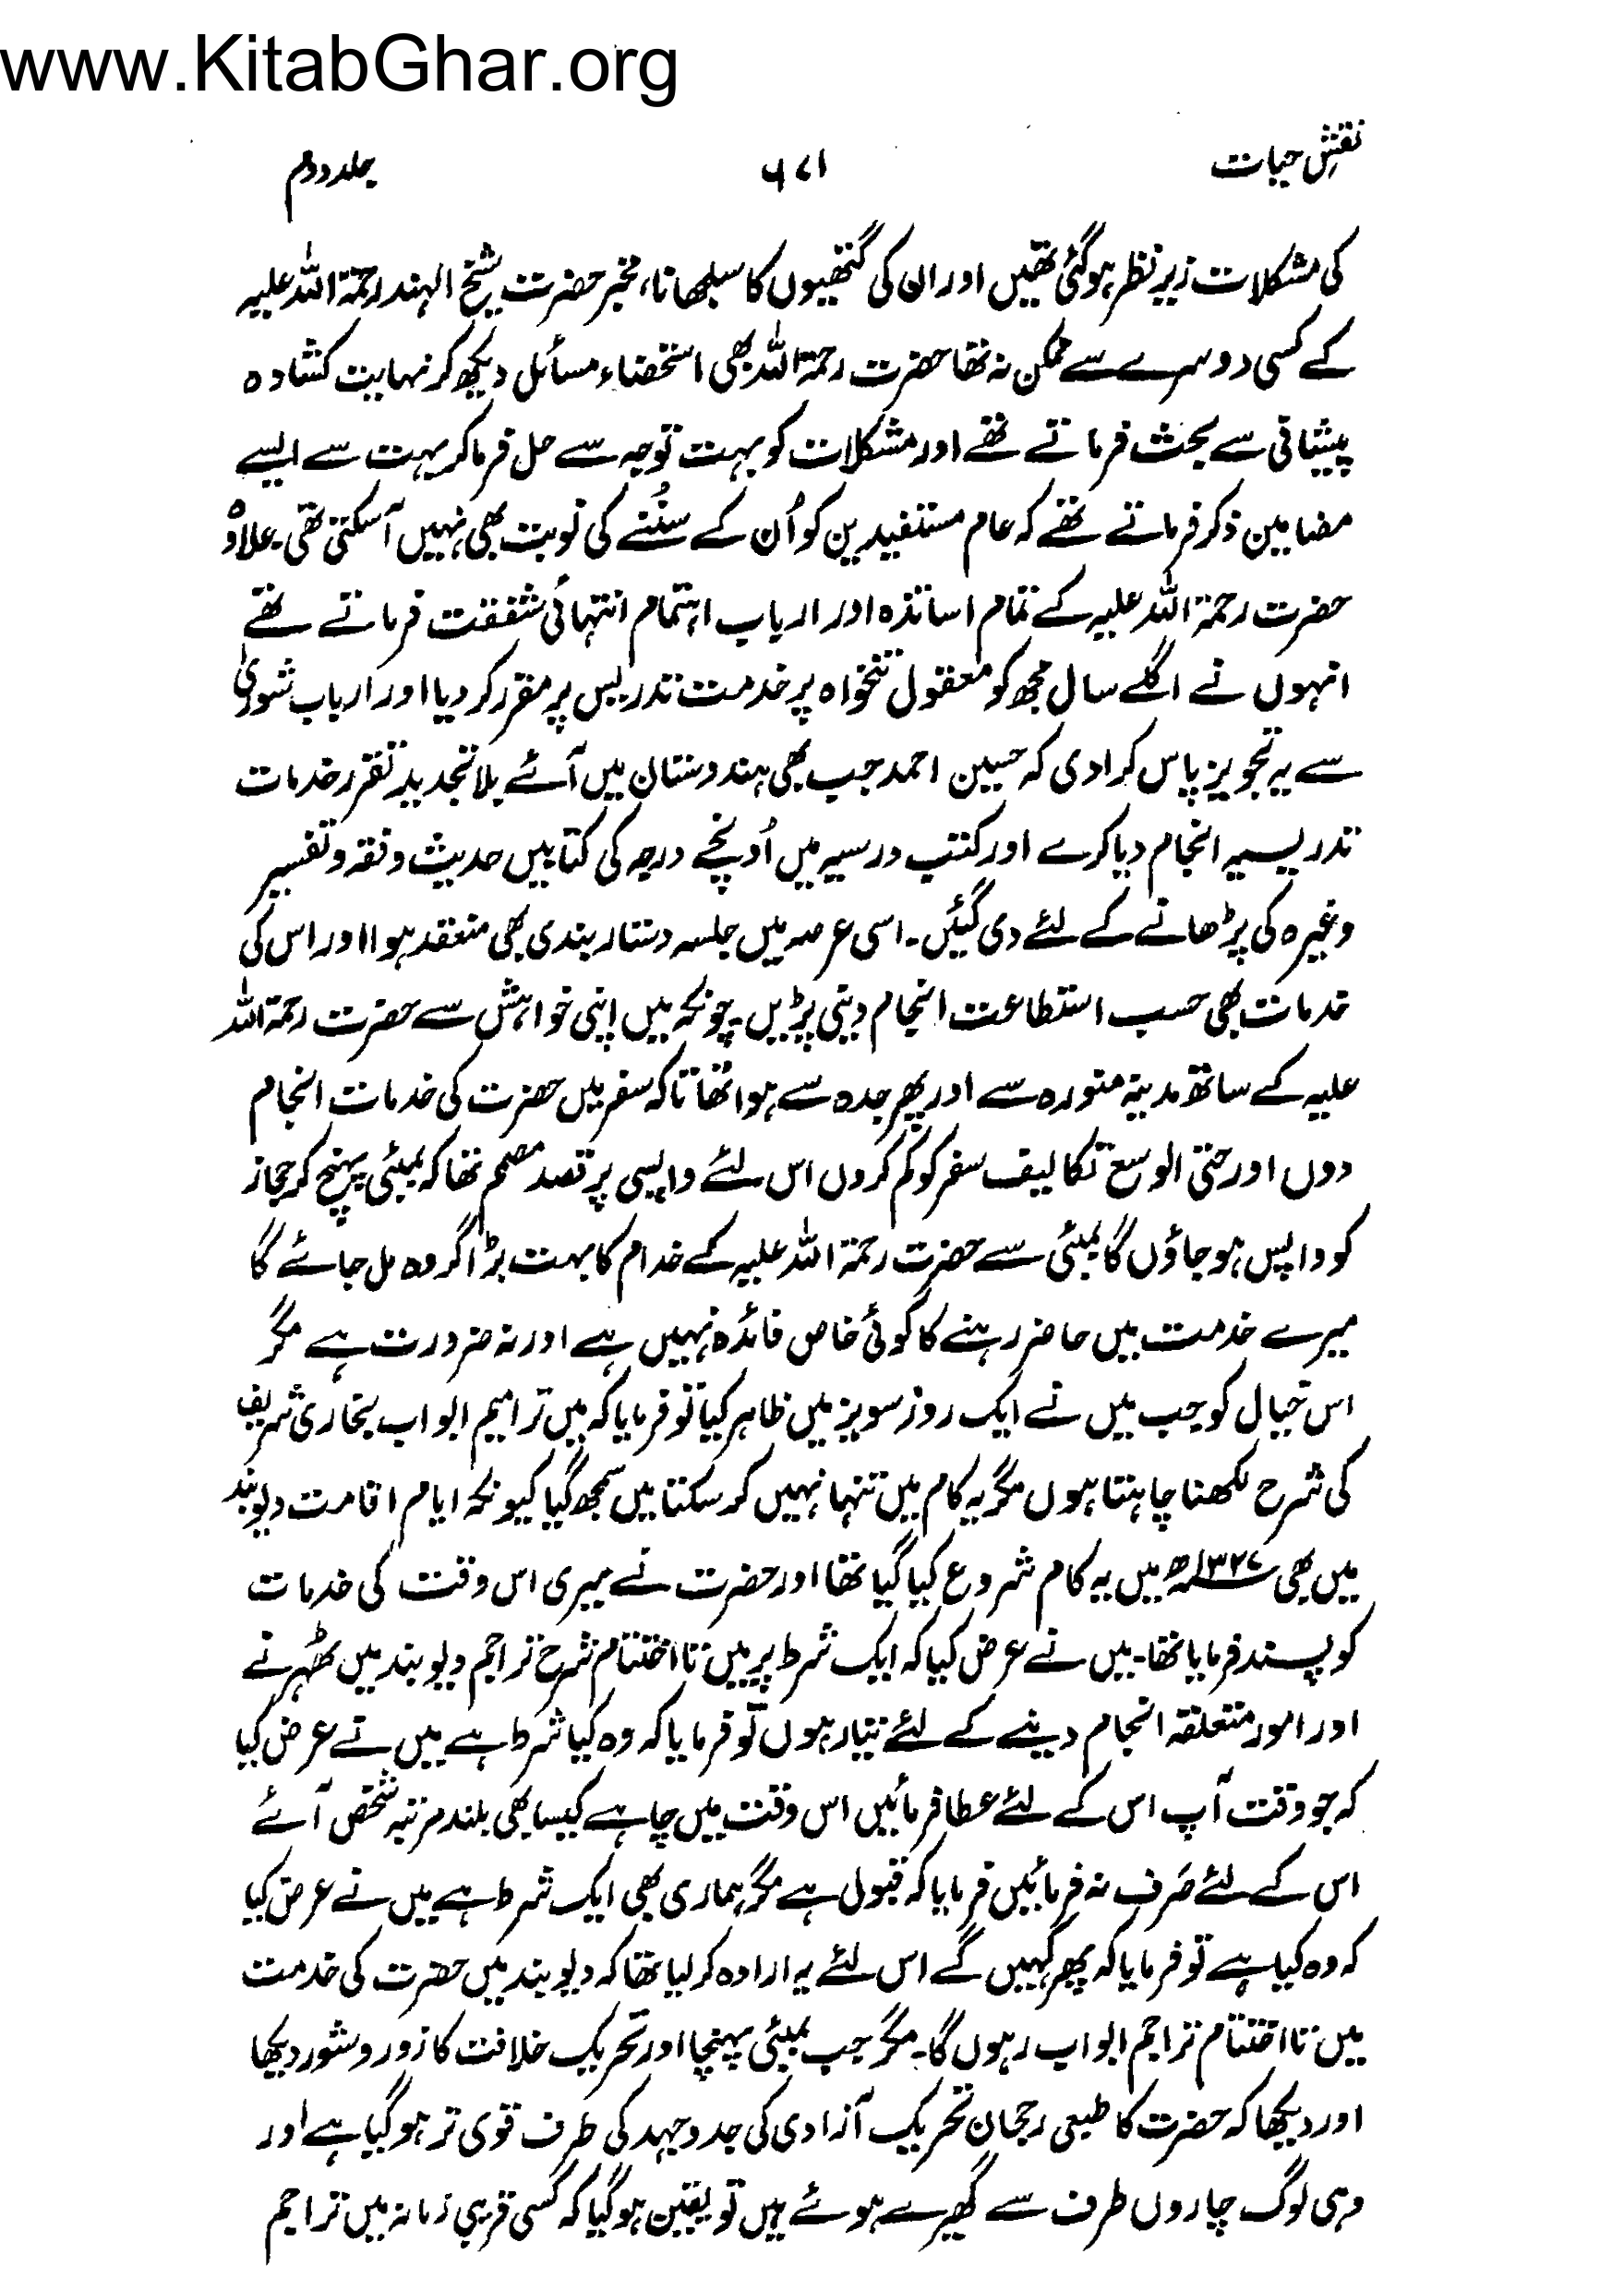 www.KitabGhar.org
نقشِ حیات ۶۷۱ جلد دوم
کی مشکلات زیر نظر ہوگئی تھیں اور ان کی گتھیوں کا سلجھانا، بجز حضرت شیخ الہند رحمۃ اللہ علیہ
کے کسی دوسرے سے ممکن نہ تھا حضرت رحمۃ اللہ بھی استحضاء مسائل دیکھ کر نہایت کشادہ
پیشانی سے بحث فرماتے تھے اور مشکلات کو بہت توجہ سے حل فرما کر بہت سے ایسے
مضامین ذکر فرماتے تھے کہ عام مستفیدین کو اُن کے سُننے کی نوبت بھی نہیں آسکتی تھی۔ علاوہ
حضرت رحمۃ اللہ علیہ کے تمام اساتذہ اور ارباب اہتمام انتہائی شفقت فرماتے تھے
انہوں نے اگلے سال مجھ کو معقول تنخواہ پر خدمت تدریس پر مقرر کر دیا اور ارباب شوریٰ
سے یہ تجویز پاس کرادی کہ حسین احمد جب بھی ہندوستان میں آئے بلا تجدید تقرر خدمات
تدریسیہ انجام دیا کرے اور کتب درسیہ میں اُونچے درجہ کی کتابیں حدیث و فقہ و تفسیر
وغیرہ کی پڑھانے کے لئے دی گیئں۔ اسی عرصہ میں جلسہ دستار بندی بھی منعقد ہوا اور اس کی
خدمات بھی حسب استطاعت انجام دینی پڑیں۔ چونکہ میں اپنی خواہش سے حضرت رحمۃ اللہ
علیہ کے ساتھ مدینہ منورہ سے اور پھر جدہ سے ہوا تھا تاکہ سفر میں حضرت کی خدمات انجام
دوں اور حتی الوسع تکالیف سفر کو کم کروں اس لئے واپسی پر قصد مصمم تھا کہ بمبئی پہنچ کر حجاز
کو واپس ہو جاؤں گا بمبئی سے حضرت رحمۃ اللہ علیہ کے خدام کا بہت بڑا گروہ مل جائے گا
میرے خدمت میں حاضر رہنے کا کوئی خاص فائدہ نہیں ہے اور نہ ضرورت ہے مگر
اس خیال کو جب میں نے ایک روز سویز میں ظاہر کیا تو فرمایا کہ میں تراجیم ابواب بخاری شریف
کی شرح لکھنا چاہتا ہوں مگر یہ کام میں تنہا نہیں کر سکتا میں سمجھ گیا کیونکہ ایام اقامت دیوبند
میں بھی ۱۳۲۷ھ میں یہ کام شروع کیا گیا تھا اور حضرت نے میری اس وقت کی خدمات
کو پسند فرمایا تھا۔ میں نے عرض کیا کہ ایک شرط پر میں تا اختتام شرح تراجم دیوبند میں ٹھہرنے
اور امور متعلقہ انجام دینے کے لئے تیار ہوں تو فرمایا کہ وہ کیا شرط ہے میں نے عرض کیا
کہ جو وقت آپ اس کے لئے عطا فرمائیں اس وقت میں چاہے کیسا بھی بلند مرتبہ شخص آئے
اس کے لئے صَرف نہ فرمائیں فرمایا کہ قبول ہے مگر ہماری بھی ایک شرط ہے میں نے عرض کیا
کہ وہ کیا ہے تو فرمایا کہ پھر کہیں گے اس لئے یہ ارادہ کر لیا تھا کہ دیوبند میں حضرت کی خدمت
میں تا اختتام تراجم ابواب رہوں گا۔ مگر جب بمبئی پہنچا اور تحریک خلافت کا زور و شور دیکھا
اور دیکھا کہ حضرت کا طبعی رجحان تحریک آزادی کی جدوجہد کی طرف قوی تر ہو گیا ہے اور
وہی لوگ چاروں طرف سے گھیرے ہوئے ہیں تو یقین ہو گیا کہ کسی قریبی زمانہ میں تراجم